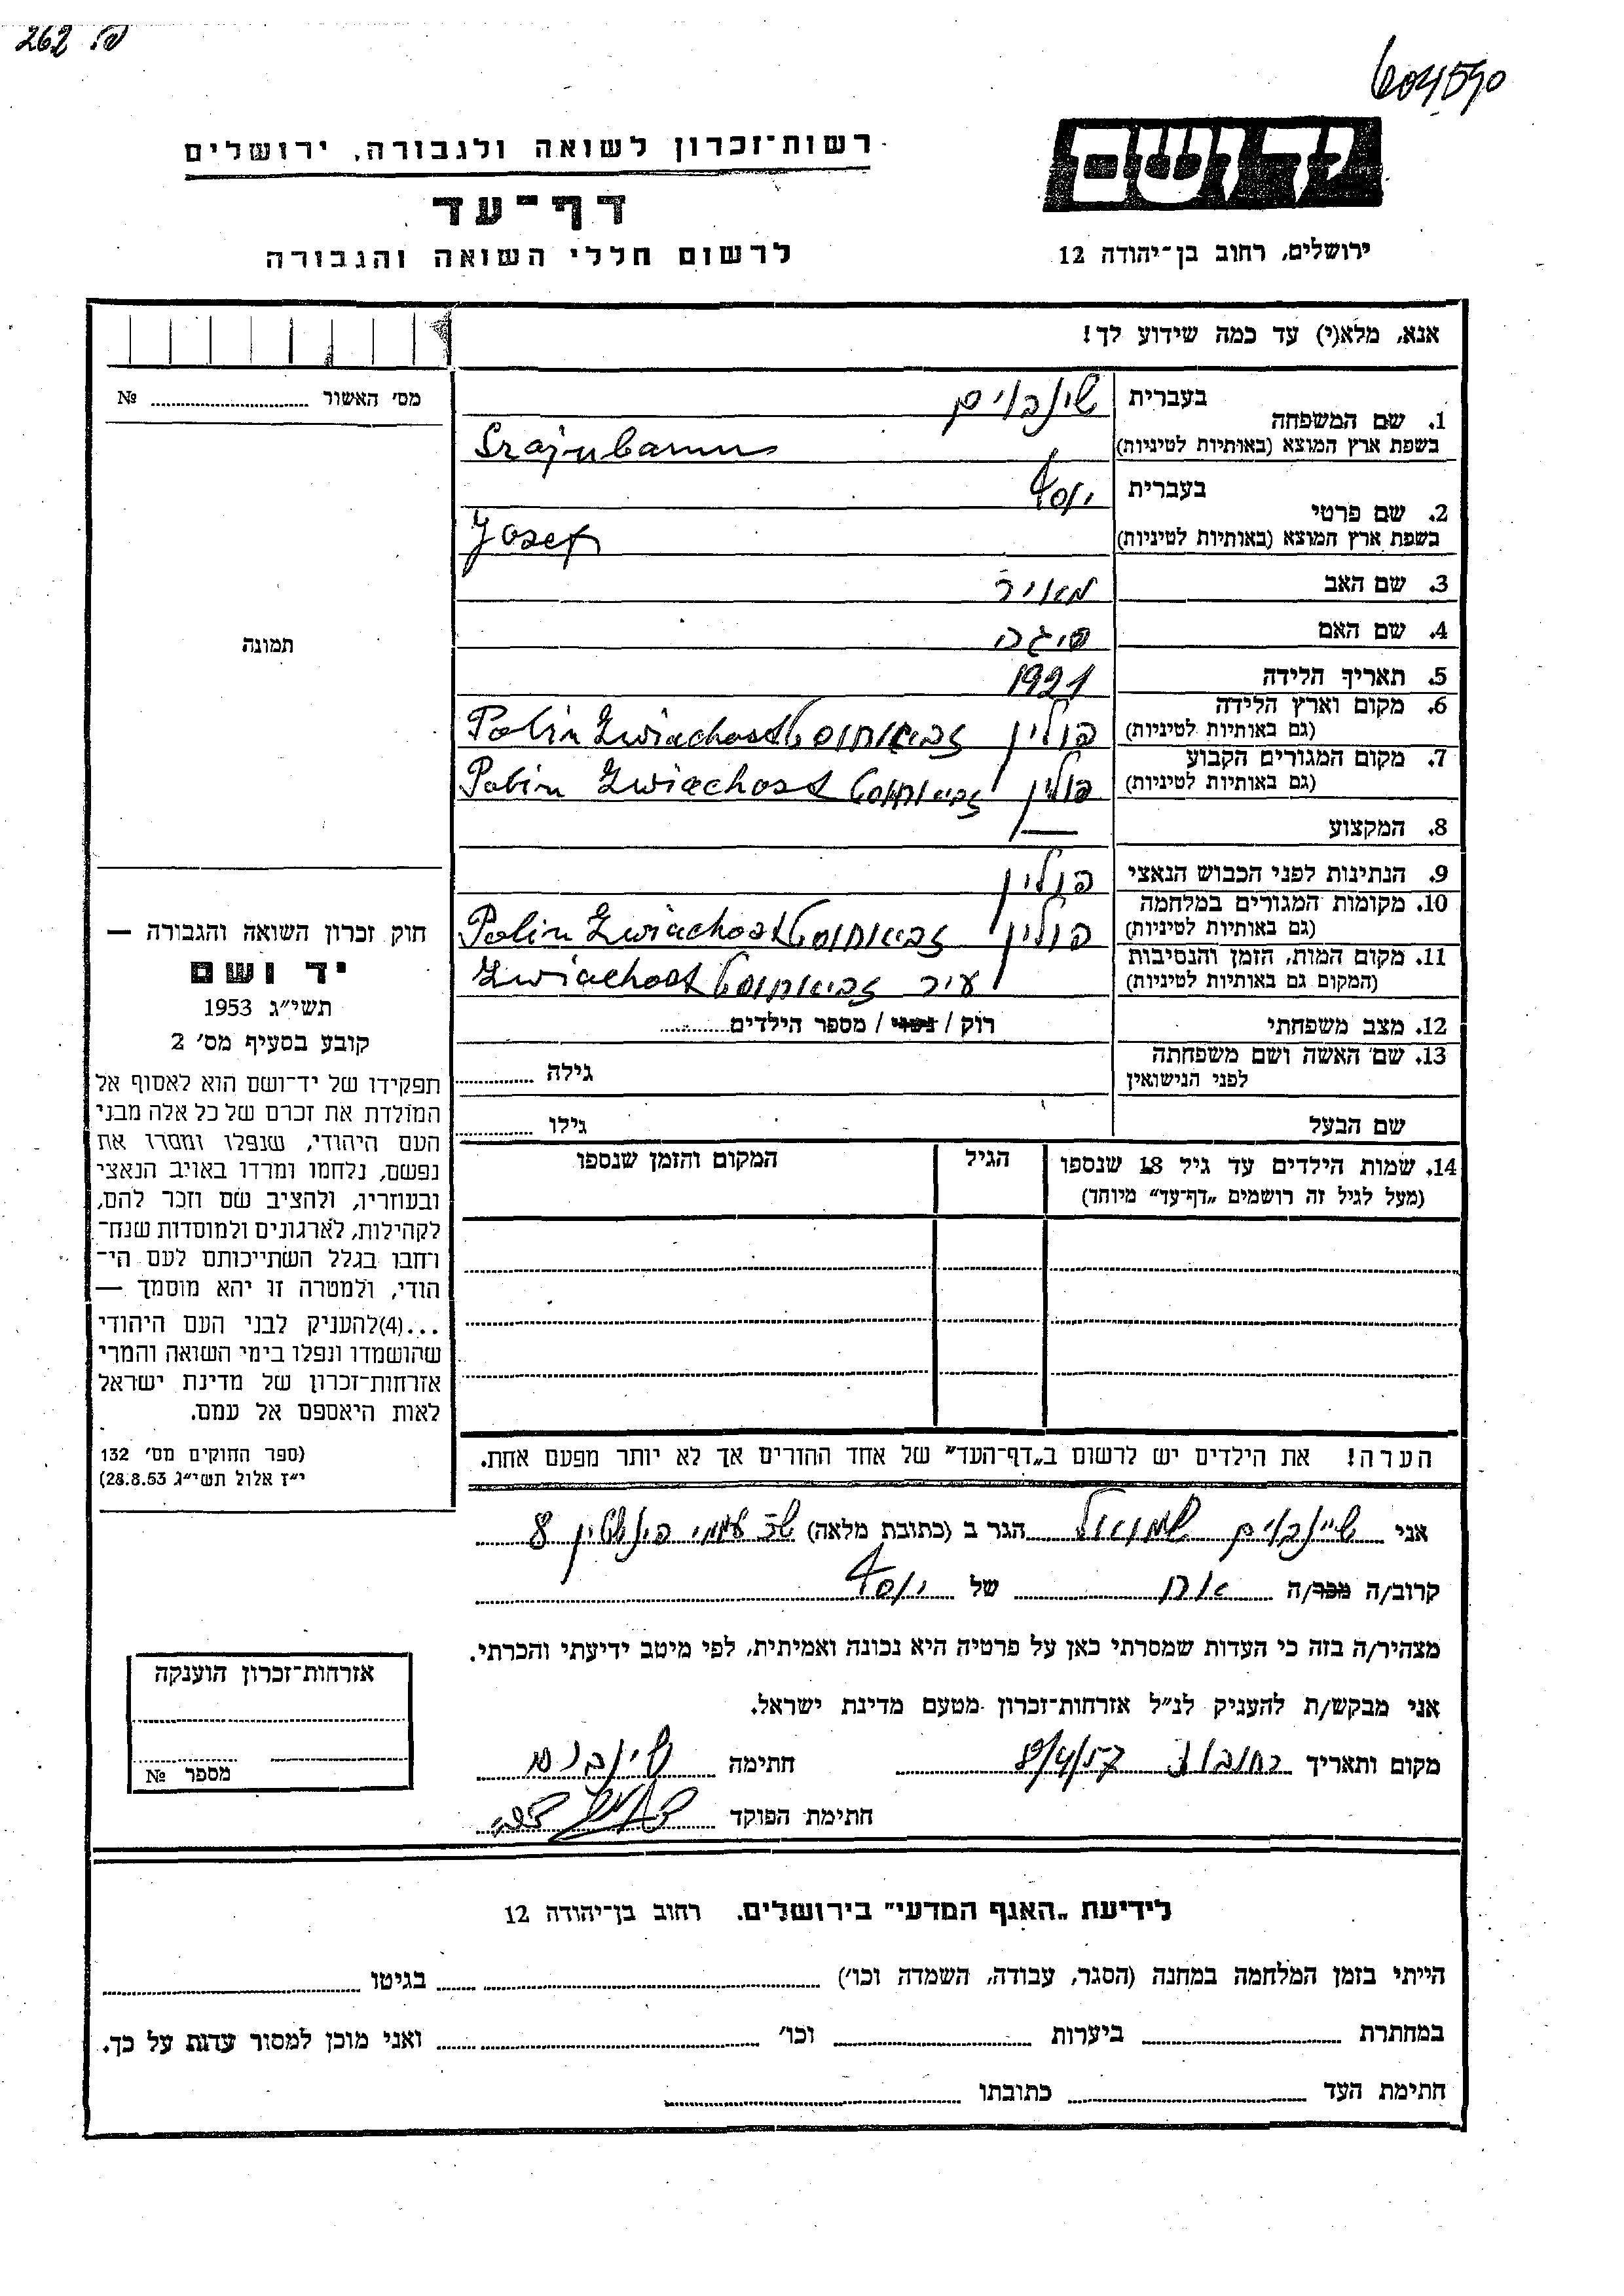 262 .פ
604590
יד ושם
רשות־זכרון לשואה ולגבורה, ירושלים
דף־עד
לרשום חללי השואה והגבורה
ירושלים, רחוב בן־יהודה 12
אנא, מלא(י) עד כמה שידוע לך!
מס׳ האשור № 
1. שם המשפחה
בעברית שינבוים
בשפת ארץ המוצא (באותיות לטיניות) Szajnbaum
2. שם פרטי
בעברית יוסף
בשפת ארץ המוצא (באותיות לטיניות) Josef
3. שם האב מאיר
4. שם האם
5. תאריך הלידה 1921
6. מקום וארץ הלידה
(גם באותיות לטיניות) פולין זביאוחוסט Polin Zwiachost
7. מקום המגורים הקבוע
(גם באותיות לטיניות) פולין זביאוחוסט Polin Zwiachost
8. המקצוע —
9. הנתינות לפני הכבוש הנאצי פולין
10. מקומות המגורים במלחמה
(גם באותיות לטיניות) פולין זביאוחוסט Polin Zwiachost
11. מקום המות, הזמן והנסיבות
(המקום גם באותיות לטיניות) עיר זביאוחוסט Zwiachost
12. מצב משפחתי רוק / נשוי / מספר הילדים
13. שם האשה ושם משפחתה
לפני הנישואין גילה
שם הבעל גילו
14. שמות הילדים עד גיל 18 שנספו
(מעל לגיל זה רושמים „דף־עד״ מיוחד)
הגיל
המקום והזמן שנספו
תמונה
חוק זכרון השואה והגבורה —
יד ושם
תשי״ג 1953
קובע בסעיף מס׳ 2
תפקידו של יד־ושם הוא לאסוף אל
המולדת את זכרם של כל אלה מבני
העם היהודי, שנפלו ומסרו את
נפשם, נלחמו ומרדו באויב הנאצי
ובעוזריו, ולהציב שם וזכר להם,
לקהילות, לארגונים ולמוסדות שנח־
רחבו בגלל השתייכותם לעם הי־
הודי, ולמטרה זו יהא מוסמך —
...(4)להעניק לבני העם היהודי
שהושמדו ונפלו בימי השואה והמרי
אזרחות־זכרון של מדינת ישראל
לאות היאספם אל עמם.
(ספר החוקים מס׳ 132
י״ז אלול תשי״ג 28.8.53)
הערה! את הילדים יש לרשום ב„דף־העד״ של אחד ההורים אך לא יותר מפעם אחת.
אני שיינבוים שמואל הגר ב (כתובת מלאה) 8
קרוב/ה מכר/ה אח של יוסף
מצהיר/ה בזה כי העדות שמסרתי כאן על פרטיה היא נכונה ואמיתית, לפי מיטב ידיעתי והכרתי.
אני מבקש/ת להעניק לנ״ל אזרחות־זכרון מטעם מדינת ישראל.
מקום ותאריך רחובות 8/4/57 חתימה שינבוים
חתימת הפוקד
אזרחות־זכרון הוענקה
מספר №
לידיעת „האגף המדעי״ בירושלים. רחוב בן־יהודה 12
הייתי בזמן המלחמה במחנה (הסגר, עבודה, השמדה וכו׳) בגיטו
במחתרת ביערות וכו׳ ואני מוכן למסור עדות על כך.
חתימת העד כתובתו